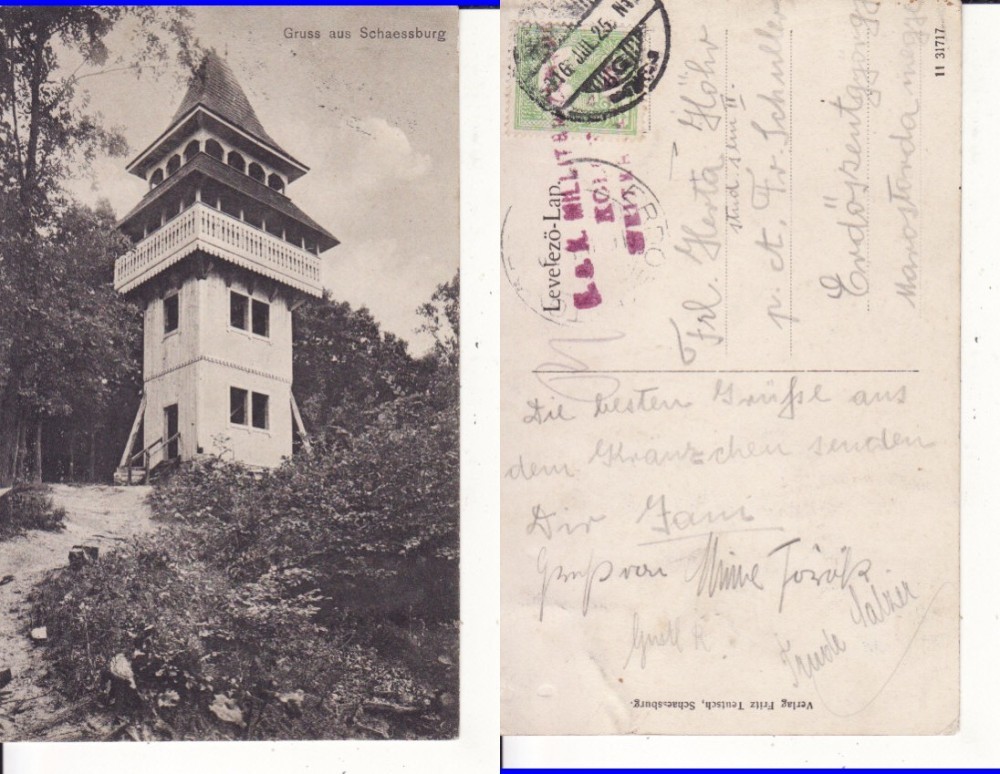 Gruss aus Schaessburg
11 31717
Levelező-Lap.
916 JUL 25
K.u.K. MILITÄR
Frl. Herta Höhr
stud. sem II.
p. A. Fr. Schuller
Erdőszentgyörgy
Marostorda megye
Die besten Grüße aus
dem Kränzchen senden
Dir Fani
Gruß von Mine Török.
Trude Salzer
Verlag Fritz Teutsch, Schaessburg.